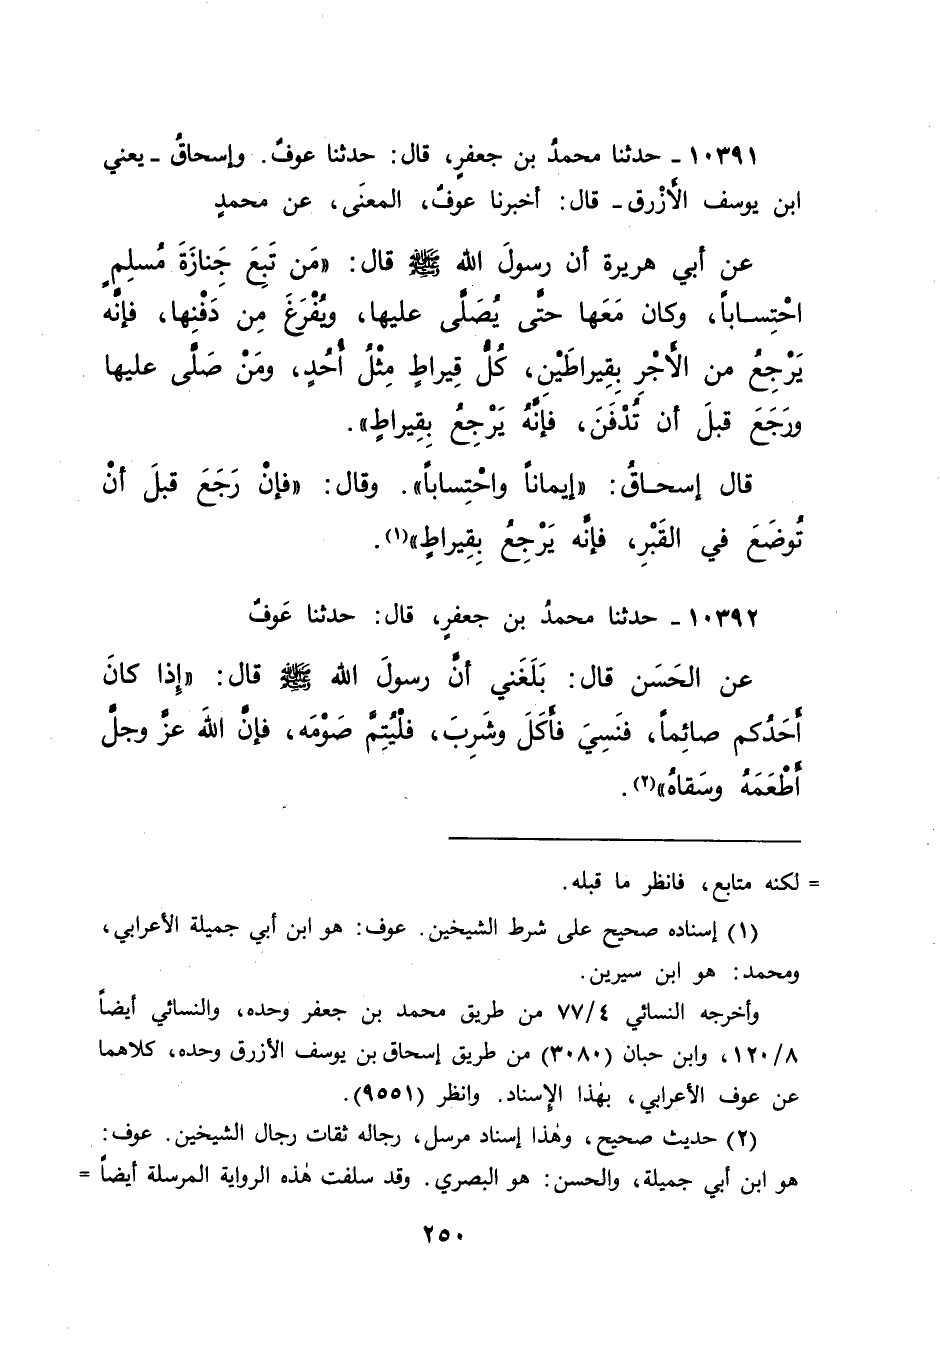 ١٠٣٩١ - حدثنا محمدُ بن جعفرٍ، قال: حدثنا عوفٌ. وإسحاقُ - يعني
ابن يوسف الأَزْرق - قال: أخبرنا عوفٌ، المعنَى، عن محمدٍ
عن أبي هريرة أن رسولَ الله ﷺ قال: «مَن تَبِعَ جَنازَةَ مُسلِمٍ
احْتِســاباً، وكان مَعَها حتَّى يُصَلَّى عليها، ويُفْرَغَ مِن دَفْنِها، فإنَّه
يَرْجِعُ من الأَجْرِ بِقيراطَيْنِ، كُلُّ قِيراطٍ مِثْلُ أُحُدٍ، ومَنْ صَلَّى عليها
ورَجَعَ قبلَ أن تُدْفَنَ، فإنَّهُ يَرْجِعُ بِقِيراطٍ».
قال إسحــاقُ: «إيماناً واحْتِساباً». وقال: «فإنْ رَجَعَ قبلَ أنْ
تُوضَعَ في القَبْرِ، فإنَّه يَرْجِعُ بِقِيراطٍ»(١).
١٠٣٩٢ - حدثنا محمدُ بن جعفرٍ، قال: حدثنا عَوفٌ
عن الحَسَن قال: بَلَغَني أنَّ رسولَ الله ﷺ قال: «إِذا كانَ
أَحَدُكم صائِماً، فنَسِيَ فأَكَلَ وشَرِبَ، فلْيُتِمَّ صَوْمَه، فإنَّ اللهَ عزَّ وجلَّ
أَطْعَمَهُ وسَقاهُ»(٢).
= لكنه متابع، فانظر ما قبله.
(١) إسناده صحيح على شرط الشيخين. عوف: هو ابن أبي جميلة الأعرابي،
ومحمد: هو ابن سيرين.
وأخرجه النسائي ٧٧/٤ من طريق محمد بن جعفر وحده، والنسائي أيضاً
١٢٠/٨، وابن حبان (٣٠٨٠) من طريق إسحاق بن يوسف الأزرق وحده، كلاهما
عن عوف الأعرابي، بهٰذا الإسناد. وانظر (٩٥٥١).
(٢) حديث صحيح، وهٰذا إسناد مرسل، رجاله ثقات رجال الشيخين. عوف:
هو ابن أبي جميلة، والحسن: هو البصري. وقد سلفت هٰذه الرواية المرسلة أيضاً =
٢٥٠